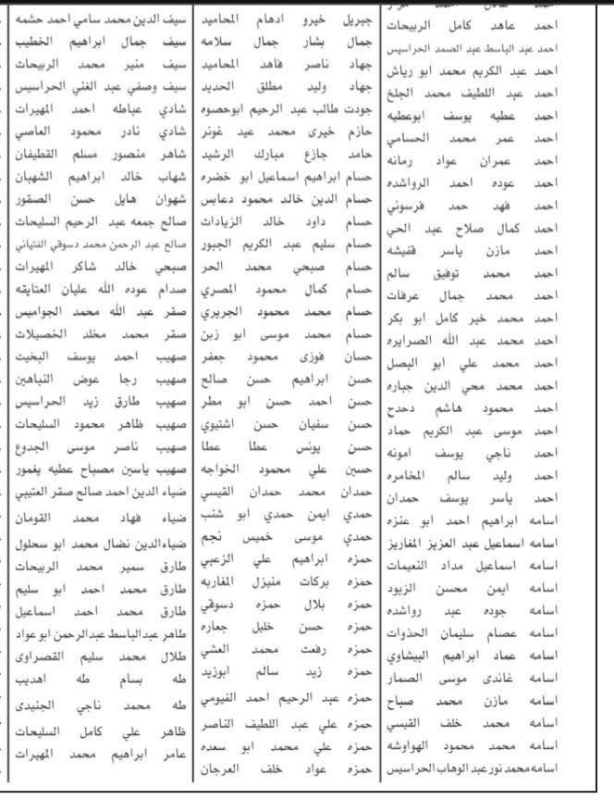 احمد عاهد كامل الربيحات
احمد عبد الباسط عبد الصمد الحراسيس
احمد عبد الكريم محمد ابو رياش
احمد عبد اللطيف محمد الجلخ
احمد عطيه يوسف ابوعطيه
احمد عمر محمد الحسامي
احمد عمران عواد رمانه
احمد عوده احمد الرواشده
احمد فهد حمد فرسوني
احمد كمال صلاح عبد الحي
احمد مازن ياسر قفيشه
احمد محمد توفيق سالم
احمد محمد جمال عرفات
احمد محمد خير كامل ابو بكر
احمد محمد عبد الله الصرايره
احمد محمد علي ابو البصل
احمد محمد محي الدين جباره
احمد محمود هاشم دحدح
احمد موسى عبد الكريم حماد
احمد ناجي يوسف امونه
احمد وليد سالم المخامره
احمد ياسر يوسف حمدان
اسامه ابراهيم احمد ابو عنزه
اسامه اسماعيل عبد العزيز المغاريز
اسامه اسماعيل مداد النعيمات
اسامه ايمن محسن الزيود
اسامه جوده عبد رواشده
اسامه عصام سليمان الحذوات
اسامه عماد ابراهيم البيشاوي
اسامه غاندى موسى الصمار
اسامه مازن محمد صباح
اسامه محمد خلف القيسي
اسامه محمد محمود الهواوشه
اسامه محمد نور عبد الوهاب الحراسيس
جبريل خيرو ادهام المحاميد
جمال بشار جمال سلامه
جهاد ناصر فاهد المحاميد
جهاد وليد مطلق الحديد
جودت طالب عبد الرحيم ابوحصوه
حازم خيرى محمد عيد غونر
حامد جازع مبارك الرشيد
حسام ابراهيم اسماعيل ابو خضره
حسام الدين خالد محمود دعابس
حسام داود خالد الزيادات
حسام سليم عبد الكريم الجبور
حسام صبحي محمد الحر
حسام كمال محمود المصري
حسام محمد محمود الجريري
حسام محمد موسى ابو زبن
حسان فوزى محمود جعفر
حسن ابراهيم حسن صالح
حسن احمد حسن ابو مطر
حسن سفيان حسن اشتيوي
حسن يونس عطا عطا
حسين علي محمود الخواجه
حمدان محمد حمدان القيسي
حمدي ايمن حمدي ابو شنب
حمدي موسى خميس نجم
حمزه ابراهيم علي الزعبي
حمزه بركات منيزل المغاربه
حمزه بلال حمزه دسوقي
حمزه حسن خليل جعاره
حمزه رفعت محمد العشي
حمزه زيد سالم ابوزيد
حمزه عبد الرحيم احمد الفيومي
حمزه علي عبد اللطيف الناصر
حمزه علي محمد ابو سعده
حمزه عواد خلف العرجان
سيف الدين محمد سامي احمد حشمه
سيف جمال ابراهيم الخطيب
سيف منير محمد الربيحات
سيف وصفي عبد الغني الحراسيس
شادي عباطه احمد المهيرات
شادي نادر محمود العاصي
شاهر منصور مسلم القطيفان
شهاب خالد ابراهيم الشهبان
شهوان هايل حسن الصقور
صالح جمعه عبد الرحيم السليحات
صالح عبد الرحمن محمد دسوقي الفتياني
صبحي خالد شاكر المهيرات
صدام عوده الله عليان العتايقه
صقر عبد الله محمد الجواميس
صقر محمد مخلد الخصيلات
صهيب احمد يوسف البخيت
صهيب رجا عوض النباهين
صهيب طارق زيد الحراسيس
صهيب ظاهر محمود السليحات
صهيب ناصر موسى الجدوع
صهيب ياسين مصباح عطيه يغمور
ضياء الدين احمد صالح صقر العتيبي
ضياء فهاد محمد القومان
ضياءالدين نضال محمد ابو سحلول
طارق سمير محمد الربيحات
طارق محمد احمد ابو سليم
طارق محمد احمد اسماعيل
طاهر عبدالباسط عبدالرحمن ابو عواد
طلال محمد سليم القصراوى
طه بسام طه اهديب
طه محمد ناجي الجنيدى
ظاهر علي كامل السليحات
عامر ابراهيم محمد المهيرات